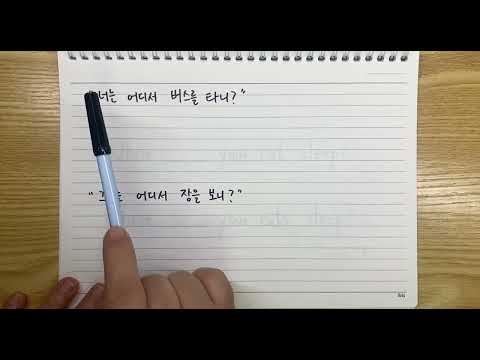 "너는 어디서 버스를 타니?"
어디서 장을 보니?"